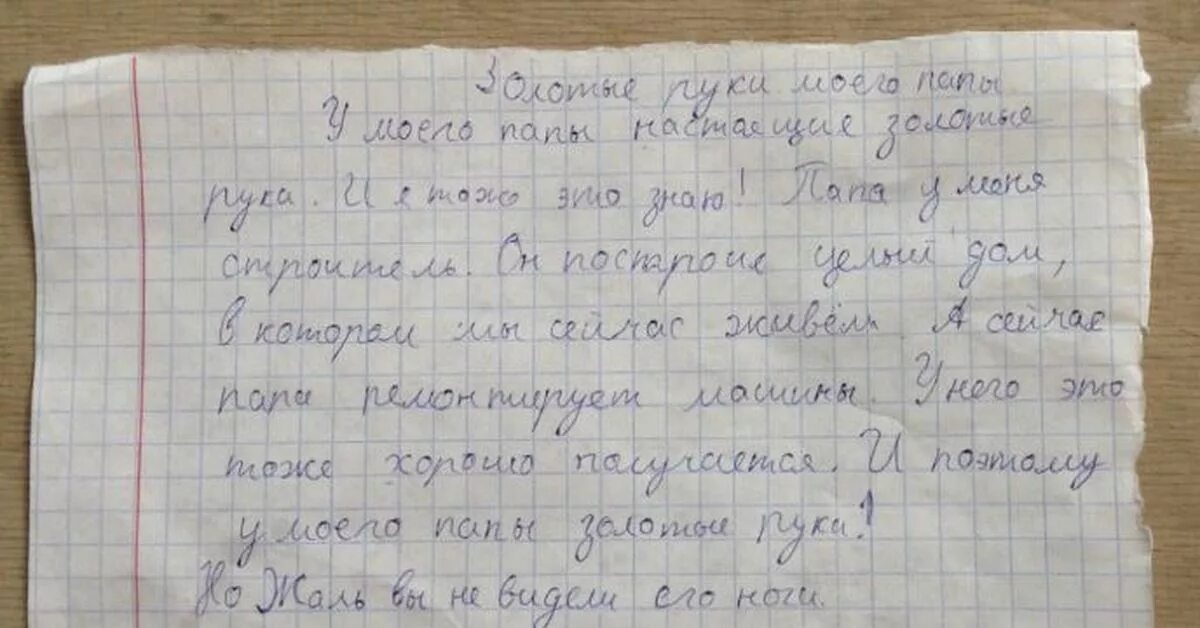 Золотые руки моего папы
У моего папы настаещие золотые
рука. И я тоже это знаю! Папа у меня
строитель. Он постароие целый дом,
в котором мы сейчас живём А сейчас
папа ремонтирует машины. У него это
тоже хорошо палучается. И поэтому
у моего папы золотые рука!
Но Жаль вы не видели его ноги.